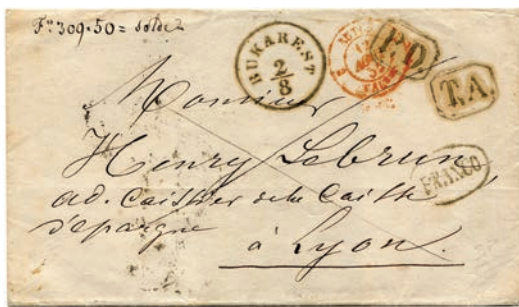 Fcs 309.50 = solde
BUKAREST
2/8
P.D.
T.A.
Monsieur
Henry Lebrun
FRANCO
ad. Caissier de la Caisse
d'epargne
à Lyon.